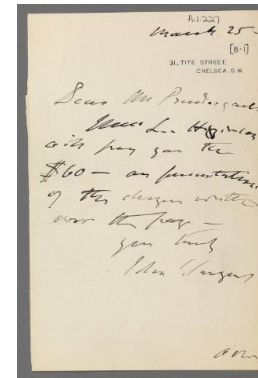 A.1.227
March 25-
[B-1]
31, TITE STREET,
CHELSEA. S.W.
Dear Mr Prendergast
Lee Higginson
will pay you the
$60 — on presentation
of the cheque written
over the page —
yrs truly
John S. Sargent